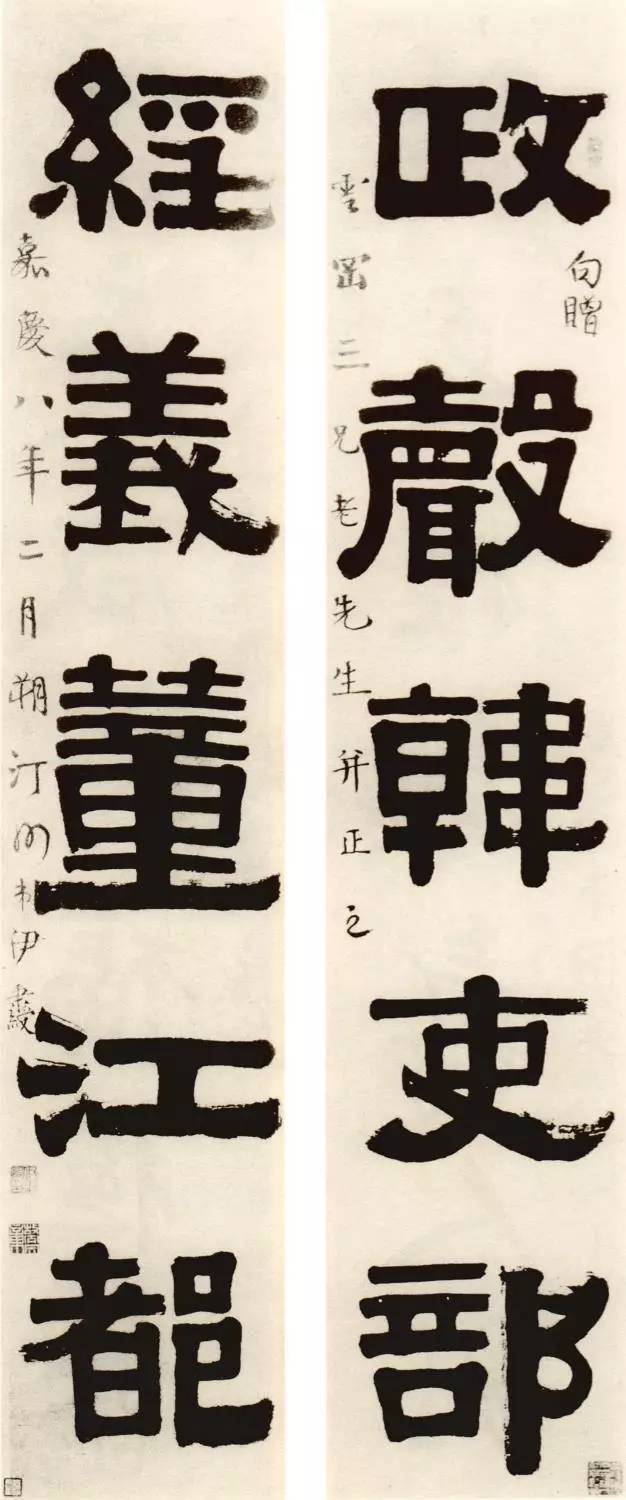 政聲韓吏部
句贈
雲三兄老先生并正之
經義董江都
嘉慶八年二月朔汀州弟伊秉綬